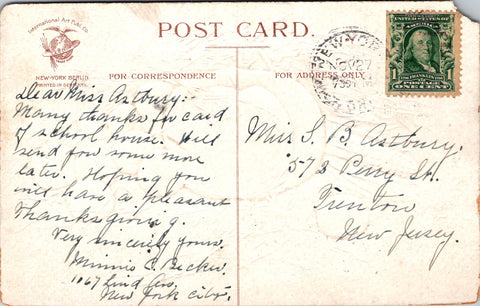 POST CARD.
International Art Publ. Co.
NEW-YORK BERLIN
PRINTED IN GERMANY
FOR CORRESPONDENCE
FOR ADDRESS ONLY
NEW YORK
NOV 27
UNITED STATES OF AMERICA
1 ONE CENT 1
Dear Miss Astbury:-
Many thanks for card
of school house. Will
send you some more
later. Hoping you
will have a pleasant
Thanksgiving.
Very sincerely yours,
Minnie C. Becker.
1067 Lind Ave,
New York City.
Miss S. B. Astbury.
572 Perry St.
Trenton
New Jersey.